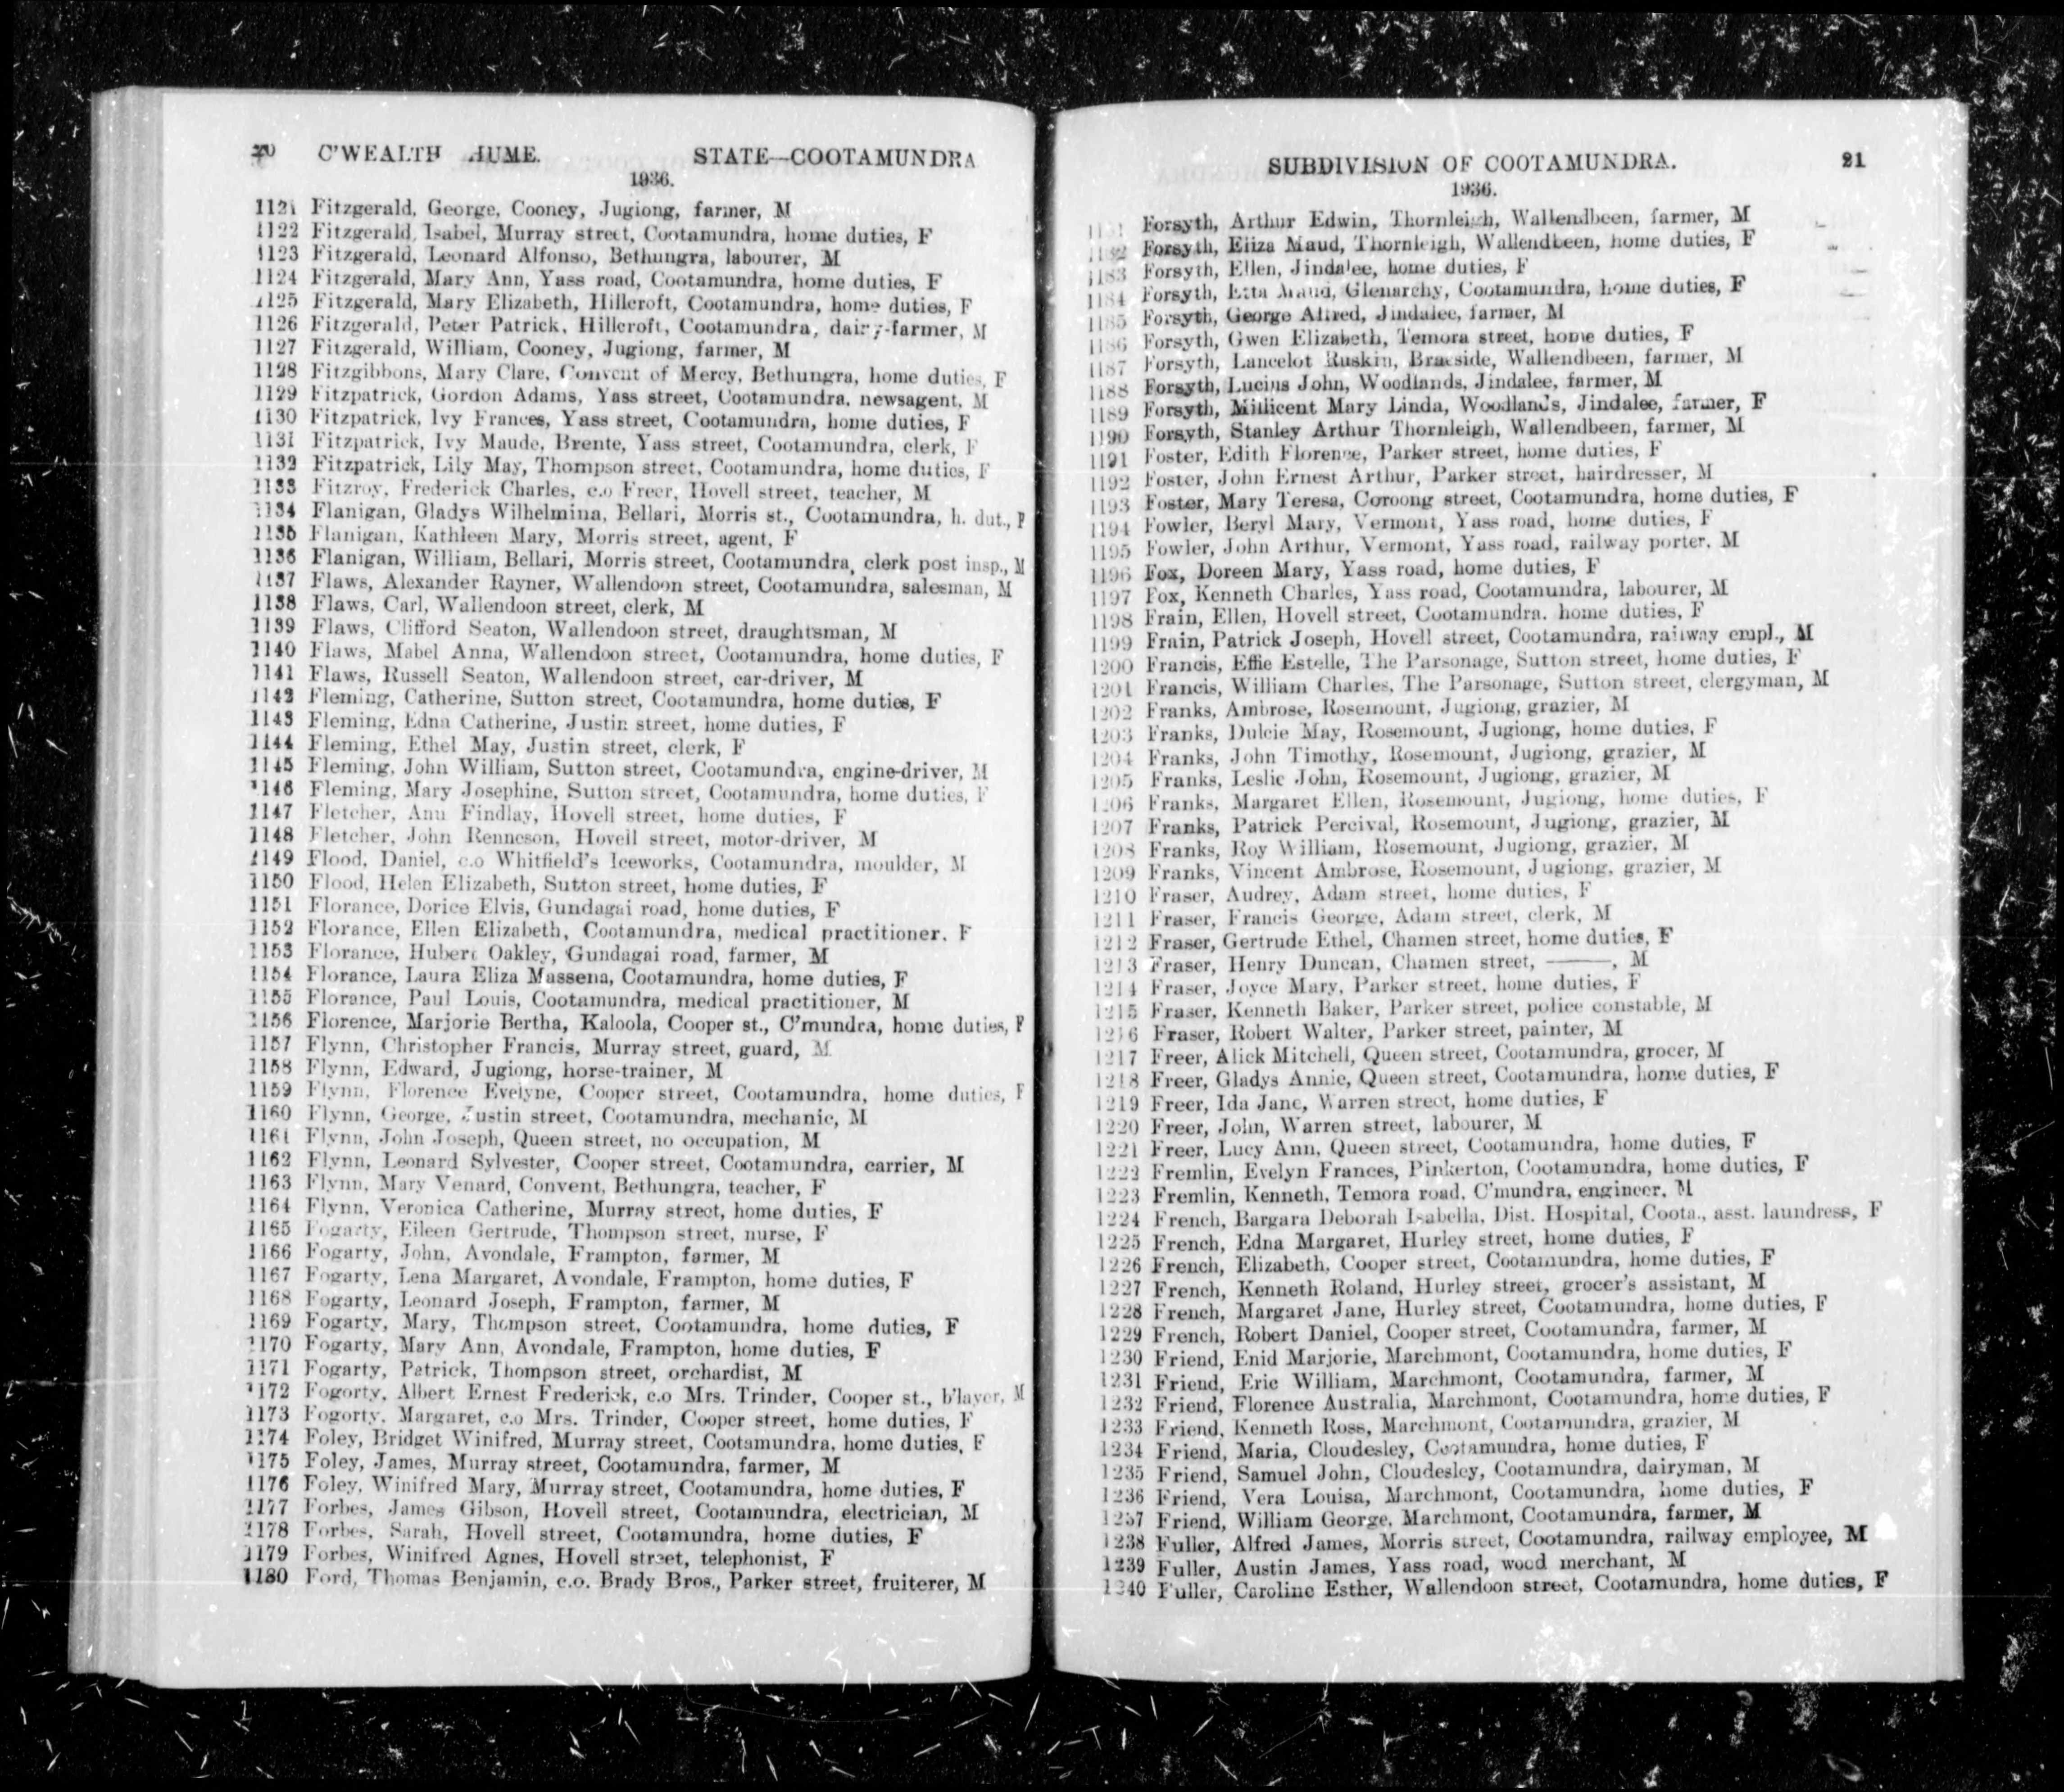 20 C'WEALTH HUME. STATE—COOTAMUNDRA
1936.
1121 Fitzgerald, George, Cooney, Jugiong, farmer, M
1122 Fitzgerald, Isabel, Murray street, Cootamundra, home duties, F
1123 Fitzgerald, Leonard Alfonso, Bethungra, labourer, M
1124 Fitzgerald, Mary Ann, Yass road, Cootamundra, home duties, F
1125 Fitzgerald, Mary Elizabeth, Hillcroft, Cootamundra, home duties, F
1126 Fitzgerald, Peter Patrick, Hillcroft, Cootamundra, dairy-farmer, M
1127 Fitzgerald, William, Cooney, Jugiong, farmer, M
1128 Fitzgibbons, Mary Clare, Convent of Mercy, Bethungra, home duties, F
1129 Fitzpatrick, Gordon Adams, Yass street, Cootamundra, newsagent, M
1130 Fitzpatrick, Ivy Frances, Yass street, Cootamundra, home duties, F
1131 Fitzpatrick, Ivy Maude, Brente, Yass street, Cootamundra, clerk, F
1132 Fitzpatrick, Lily May, Thompson street, Cootamundra, home duties, F
1133 Fitzroy, Frederick Charles, c.o Freer, Hovell street, teacher, M
1134 Flanigan, Gladys Wilhelmina, Bellari, Morris st., Cootamundra, h. dut., F
1135 Flanigan, Kathleen Mary, Morris street, agent, F
1136 Flanigan, William, Bellari, Morris street, Cootamundra, clerk post insp., M
1137 Flaws, Alexander Rayner, Wallendoon street, Cootamundra, salesman, M
1138 Flaws, Carl, Wallendoon street, clerk, M
1139 Flaws, Clifford Seaton, Wallendoon street, draughtsman, M
1140 Flaws, Mabel Anna, Wallendoon street, Cootamundra, home duties, F
1141 Flaws, Russell Seaton, Wallendoon street, car-driver, M
1142 Fleming, Catherine, Sutton street, Cootamundra, home duties, F
1143 Fleming, Edna Catherine, Justin street, home duties, F
1144 Fleming, Ethel May, Justin street, clerk, F
1145 Fleming, John William, Sutton street, Cootamundra, engine-driver, M
1146 Fleming, Mary Josephine, Sutton street, Cootamundra, home duties, F
1147 Fletcher, Ann Findlay, Hovell street, home duties, F
1148 Fletcher, John Renneson, Hovell street, motor-driver, M
1149 Flood, Daniel, c.o Whitfield's Iceworks, Cootamundra, moulder, M
1150 Flood, Helen Elizabeth, Sutton street, home duties, F
1151 Florance, Dorice Elvis, Gundagai road, home duties, F
1152 Florance, Ellen Elizabeth, Cootamundra, medical practitioner, F
1153 Florance, Hubert Oakley, Gundagai road, farmer, M
1154 Florance, Laura Eliza Massena, Cootamundra, home duties, F
1155 Florance, Paul Louis, Cootamundra, medical practitioner, M
1156 Florence, Marjorie Bertha, Kaloola, Cooper st., C'mundra, home duties, F
1157 Flynn, Christopher Francis, Murray street, guard, M
1158 Flynn, Edward, Jugiong, horse-trainer, M
1159 Flynn, Florence Evelyne, Cooper street, Cootamundra, home duties, F
1160 Flynn, George, Justin street, Cootamundra, mechanic, M
1161 Flynn, John Joseph, Queen street, no occupation, M
1162 Flynn, Leonard Sylvester, Cooper street, Cootamundra, carrier, M
1163 Flynn, Mary Venard, Convent, Bethungra, teacher, F
1164 Flynn, Veronica Catherine, Murray street, home duties, F
1165 Fogarty, Eileen Gertrude, Thompson street, nurse, F
1166 Fogarty, John, Avondale, Frampton, farmer, M
1167 Fogarty, Lena Margaret, Avondale, Frampton, home duties, F
1168 Fogarty, Leonard Joseph, Frampton, farmer, M
1169 Fogarty, Mary, Thompson street, Cootamundra, home duties, F
1170 Fogarty, Mary Ann, Avondale, Frampton, home duties, F
1171 Fogarty, Patrick, Thompson street, orchardist, M
1172 Fogorty, Albert Ernest Frederick, c.o Mrs. Trinder, Cooper st., b'layer, M
1173 Fogorty, Margaret, c.o Mrs. Trinder, Cooper street, home duties, F
1174 Foley, Bridget Winifred, Murray street, Cootamundra, home duties, F
1175 Foley, James, Murray street, Cootamundra, farmer, M
1176 Foley, Winifred Mary, Murray street, Cootamundra, home duties, F
1177 Forbes, James Gibson, Hovell street, Cootamundra, electrician, M
1178 Forbes, Sarah, Hovell street, Cootamundra, home duties, F
1179 Forbes, Winifred Agnes, Hovell street, telephonist, F
1180 Ford, Thomas Benjamin, c.o. Brady Bros., Parker street, fruiterer, M
SUBDIVISION OF COOTAMUNDRA. 21
1936.
1181 Forsyth, Arthur Edwin, Thornleigh, Wallendbeen, farmer, M
1182 Forsyth, Eliza Maud, Thornleigh, Wallendbeen, home duties, F
1183 Forsyth, Ellen, Jindalee, home duties, F
1184 Forsyth, Maud, Glenarchy, Cootamundra, home duties, F
1185 Forsyth, George Alfred, Jindalee, farmer, M
1186 Forsyth, Gwen Elizabeth, Temora street, home duties, F
1187 Forsyth, Lancelot Ruskin, Braeside, Wallendbeen, farmer, M
1188 Forsyth, Lucius John, Woodlands, Jindalee, farmer, M
1189 Forsyth, Millicent Mary Linda, Woodlands, Jindalee, farmer, F
1190 Forsyth, Stanley Arthur Thornleigh, Wallendbeen, farmer, M
1191 Foster, Edith Florence, Parker street, home duties, F
1192 Foster, John Ernest Arthur, Parker street, hairdresser, M
1193 Foster, Mary Teresa, Coroong street, Cootamundra, home duties, F
1194 Fowler, Beryl Mary, Vermont, Yass road, home duties, F
1195 Fowler, John Arthur, Vermont, Yass road, railway porter, M
1196 Fox, Doreen Mary, Yass road, home duties, F
1197 Fox, Kenneth Charles, Yass road, Cootamundra, labourer, M
1198 Frain, Ellen, Hovell street, Cootamundra, home duties, F
1199 Frain, Patrick Joseph, Hovell street, Cootamundra, railway empl., M
1200 Francis, Effie Estelle, The Parsonage, Sutton street, home duties, F
1201 Francis, William Charles, The Parsonage, Sutton street, clergyman, M
1202 Franks, Ambrose, Rosemount, Jugiong, grazier, M
1203 Franks, Dulcie May, Rosemount, Jugiong, home duties, F
1204 Franks, John Timothy, Rosemount, Jugiong, grazier, M
1205 Franks, Leslie John, Rosemount, Jugiong, grazier, M
1206 Franks, Margaret Ellen, Rosemount, Jugiong, home duties, F
1207 Franks, Patrick Percival, Rosemount, Jugiong, grazier, M
1208 Franks, Roy William, Rosemount, Jugiong, grazier, M
1209 Franks, Vincent Ambrose, Rosemount, Jugiong, grazier, M
1210 Fraser, Audrey, Adam street, home duties, F
1211 Fraser, Francis George, Adam street, clerk, M
1212 Fraser, Gertrude Ethel, Chamen street, home duties, F
1213 Fraser, Henry Duncan, Chamen street, ———, M
1214 Fraser, Joyce Mary, Parker street, home duties, F
1215 Fraser, Kenneth Baker, Parker street, police constable, M
1216 Fraser, Robert Walter, Parker street, painter, M
1217 Freer, Alick Mitchell, Queen street, Cootamundra, grocer, M
1218 Freer, Gladys Annie, Queen street, Cootamundra, home duties, F
1219 Freer, Ida Jane, Warren street, home duties, F
1220 Freer, John, Warren street, labourer, M
1221 Freer, Lucy Ann, Queen street, Cootamundra, home duties, F
1222 Fremlin, Evelyn Frances, Pinkerton, Cootamundra, home duties, F
1223 Fremlin, Kenneth, Temora road, C'mundra, engineer, M
1224 French, Bargara Deborah Isabella, Dist. Hospital, Coota., asst. laundress, F
1225 French, Edna Margaret, Hurley street, home duties, F
1226 French, Elizabeth, Cooper street, Cootamundra, home duties, F
1227 French, Kenneth Roland, Hurley street, grocer's assistant, M
1228 French, Margaret Jane, Hurley street, Cootamundra, home duties, F
1229 French, Robert Daniel, Cooper street, Cootamundra, farmer, M
1230 Friend, Enid Marjorie, Marchmont, Cootamundra, home duties, F
1231 Friend, Eric William, Marchmont, Cootamundra, farmer, M
1232 Friend, Florence Australia, Marchmont, Cootamundra, home duties, F
1233 Friend, Kenneth Ross, Marchmont, Cootamundra, grazier, M
1234 Friend, Maria, Cloudesley, Cootamundra, home duties, F
1235 Friend, Samuel John, Cloudesley, Cootamundra, dairyman, M
1236 Friend, Vera Louisa, Marchmont, Cootamundra, home duties, F
1237 Friend, William George, Marchmont, Cootamundra, farmer, M
1238 Fuller, Alfred James, Morris street, Cootamundra, railway employee, M
1239 Fuller, Austin James, Yass road, wood merchant, M
1240 Fuller, Caroline Esther, Wallendoon street, Cootamundra, home duties, F